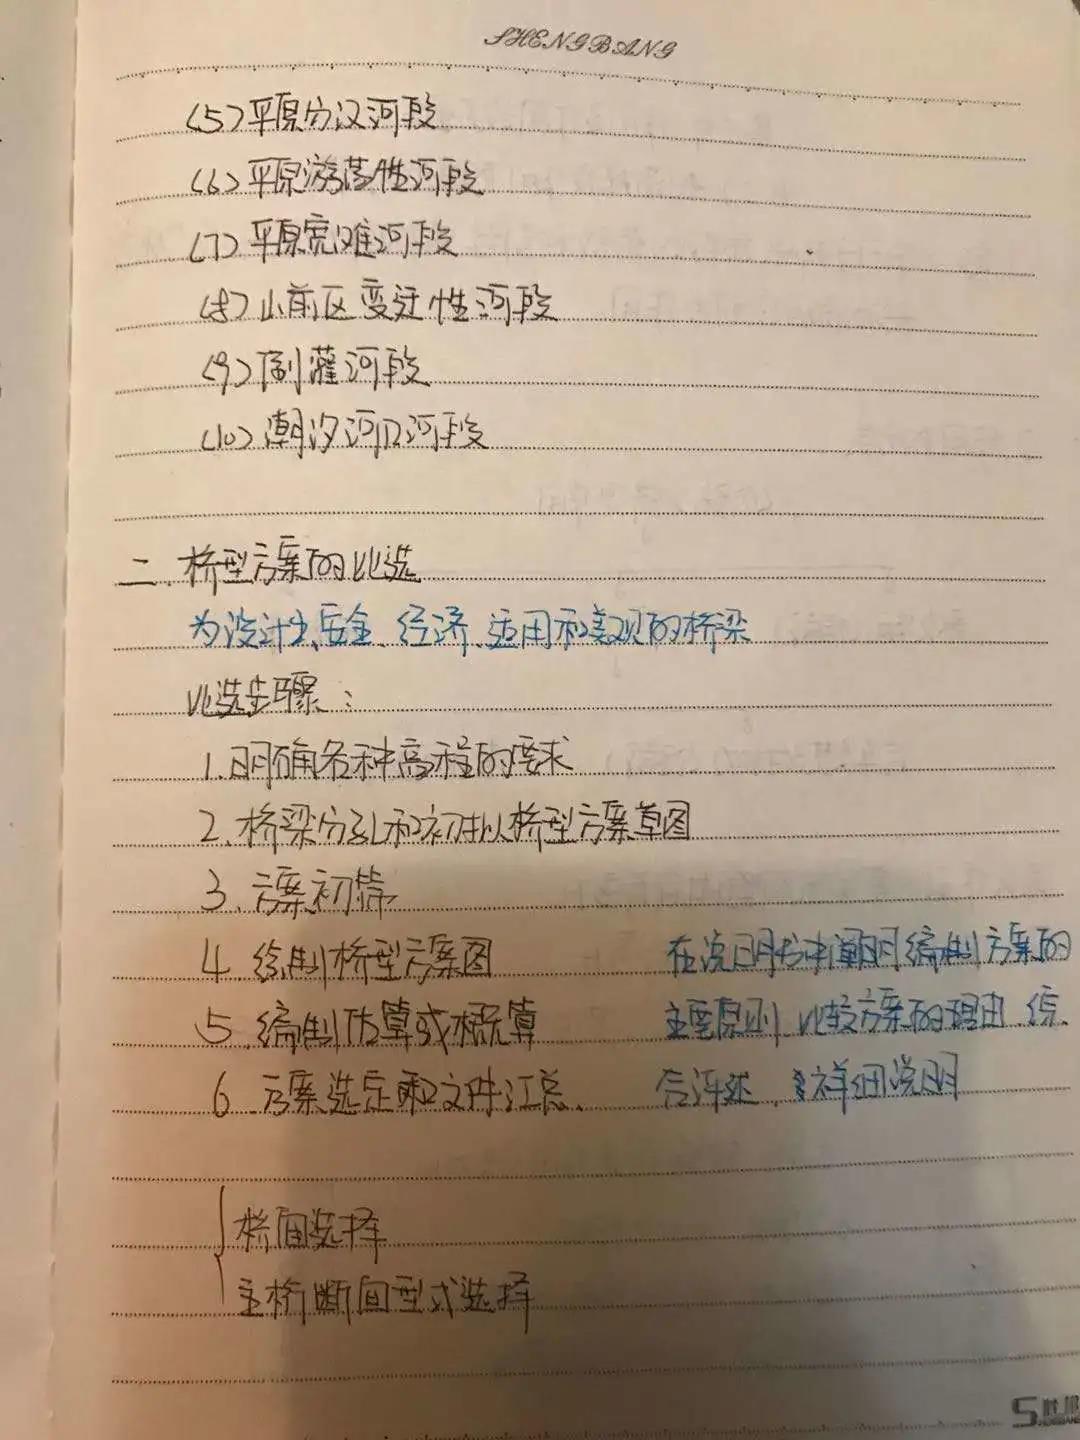 SHENGBANG
(5)平原分汊河段
(6)平原游荡性河段
(7)平原宽滩河段
(8)山前区变迁性河段
(9)倒灌河段
(10)潮汐河口河段
二.桥型方案的比选
为设计出安全、经济、适用和美观的桥梁
比选步骤:
1.明确各种高程的要求
2.桥梁分孔和初拟桥型方案草图
3.方案初筛
4.绘制桥型方案图
在说明书中阐明编制方案的
5.编制估算或概算
主要原则、比较方案的理由、综
6.方案选定和文件汇总.
合评述、详细说明
桥面选择
主桥断面型式选择